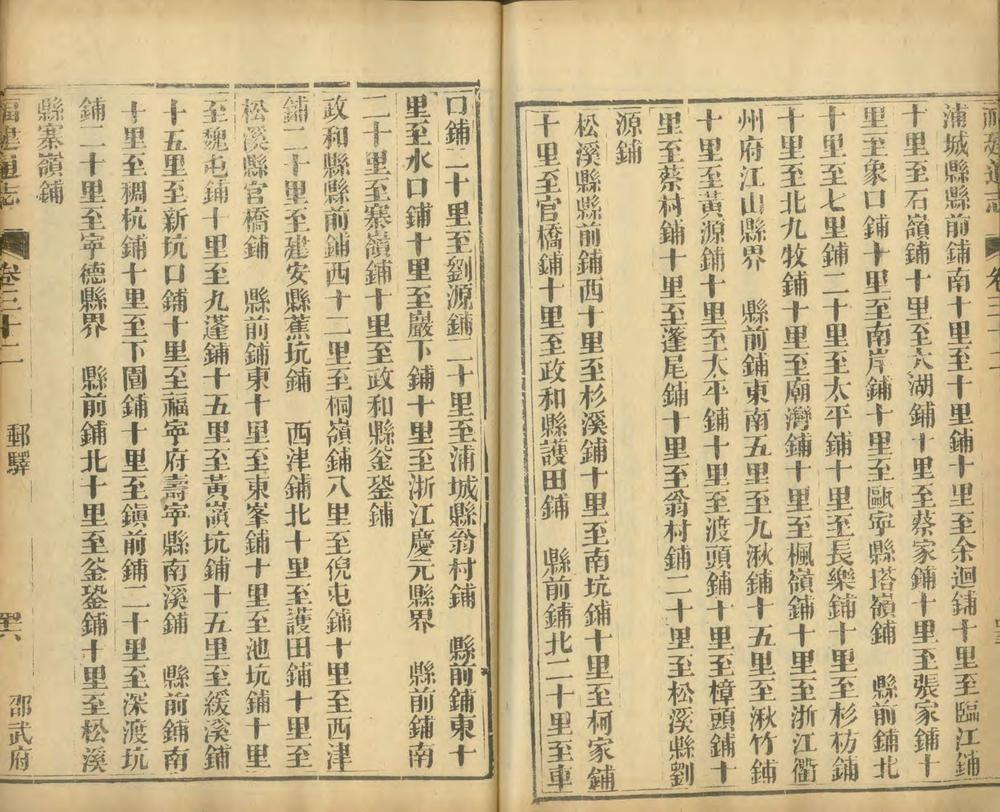 福建通志 卷三十二
浦城縣縣前鋪南十里至十里鋪十里至余迴鋪十里至臨江鋪
十里至石嶺鋪十里至大湖鋪十里至蔡家鋪十里至張家鋪十
里至象口鋪十里至南岸鋪十里至甌寧縣塔嶺鋪 縣前鋪北
十里至七里鋪二十里至太平鋪十里至長樂鋪十里至杉枋鋪
十里至北九牧鋪十里至廟灣鋪十里至楓嶺鋪十里至浙江衢
州府江山縣界 縣前鋪東南五里至九湫鋪十五里至湫竹鋪
十里至黃源鋪十里至太平鋪十里至渡頭鋪十里至樟頭鋪十
里至蔡村鋪十里至蓬尾鋪十里至翁村鋪二十里至松溪縣劉
源鋪
松溪縣縣前鋪西十里至杉溪鋪十里至南坑鋪十里至柯家鋪
十里至官橋鋪十里至政和縣護田鋪 縣前鋪北二十里至車
口鋪二十里至劉源鋪二十里至浦城縣翁村鋪 縣前鋪東十
里至水口鋪十里至巖下鋪十里至浙江慶元縣界 縣前鋪南
二十里至寨嶺鋪十里至政和縣釜銎鋪
政和縣縣前鋪西十二里至桐嶺鋪八里至倪屯鋪十里至西津
鋪二十里至建安縣蕉坑鋪 西津鋪北十里至護田鋪十里至
松溪縣官橋鋪 縣前鋪東十里至東峯鋪十里至池坑鋪十里
至魏屯鋪十里至九蓬鋪十五里至黃嶺坑鋪十五里至緩溪鋪
十五里至新坑口鋪十里至福寧府壽寧縣南溪鋪 縣前鋪南
十里至稠杭鋪十里至下園鋪十里至鎮前鋪二十里至深渡坑
鋪二十里至寧德縣界 縣前鋪北十里至釜銎鋪十里至松溪
縣寨嶺鋪
福建通志 卷三十二 郵驛 邵武府